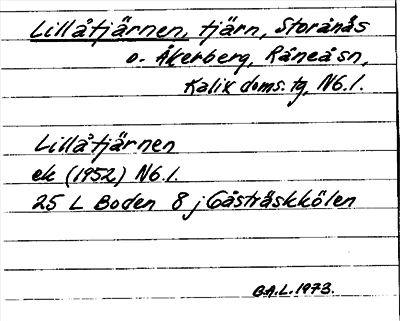 Lillåtjärnen, tjärn, Storånäs
o. Åkerberg, Råneå sn,
Kalix doms. tg, N6.1.
Lillåtjärnen
ek (1952) N6.1.
25 L Boden 8 j Gåsträskkölen
G.A.L. 1973.